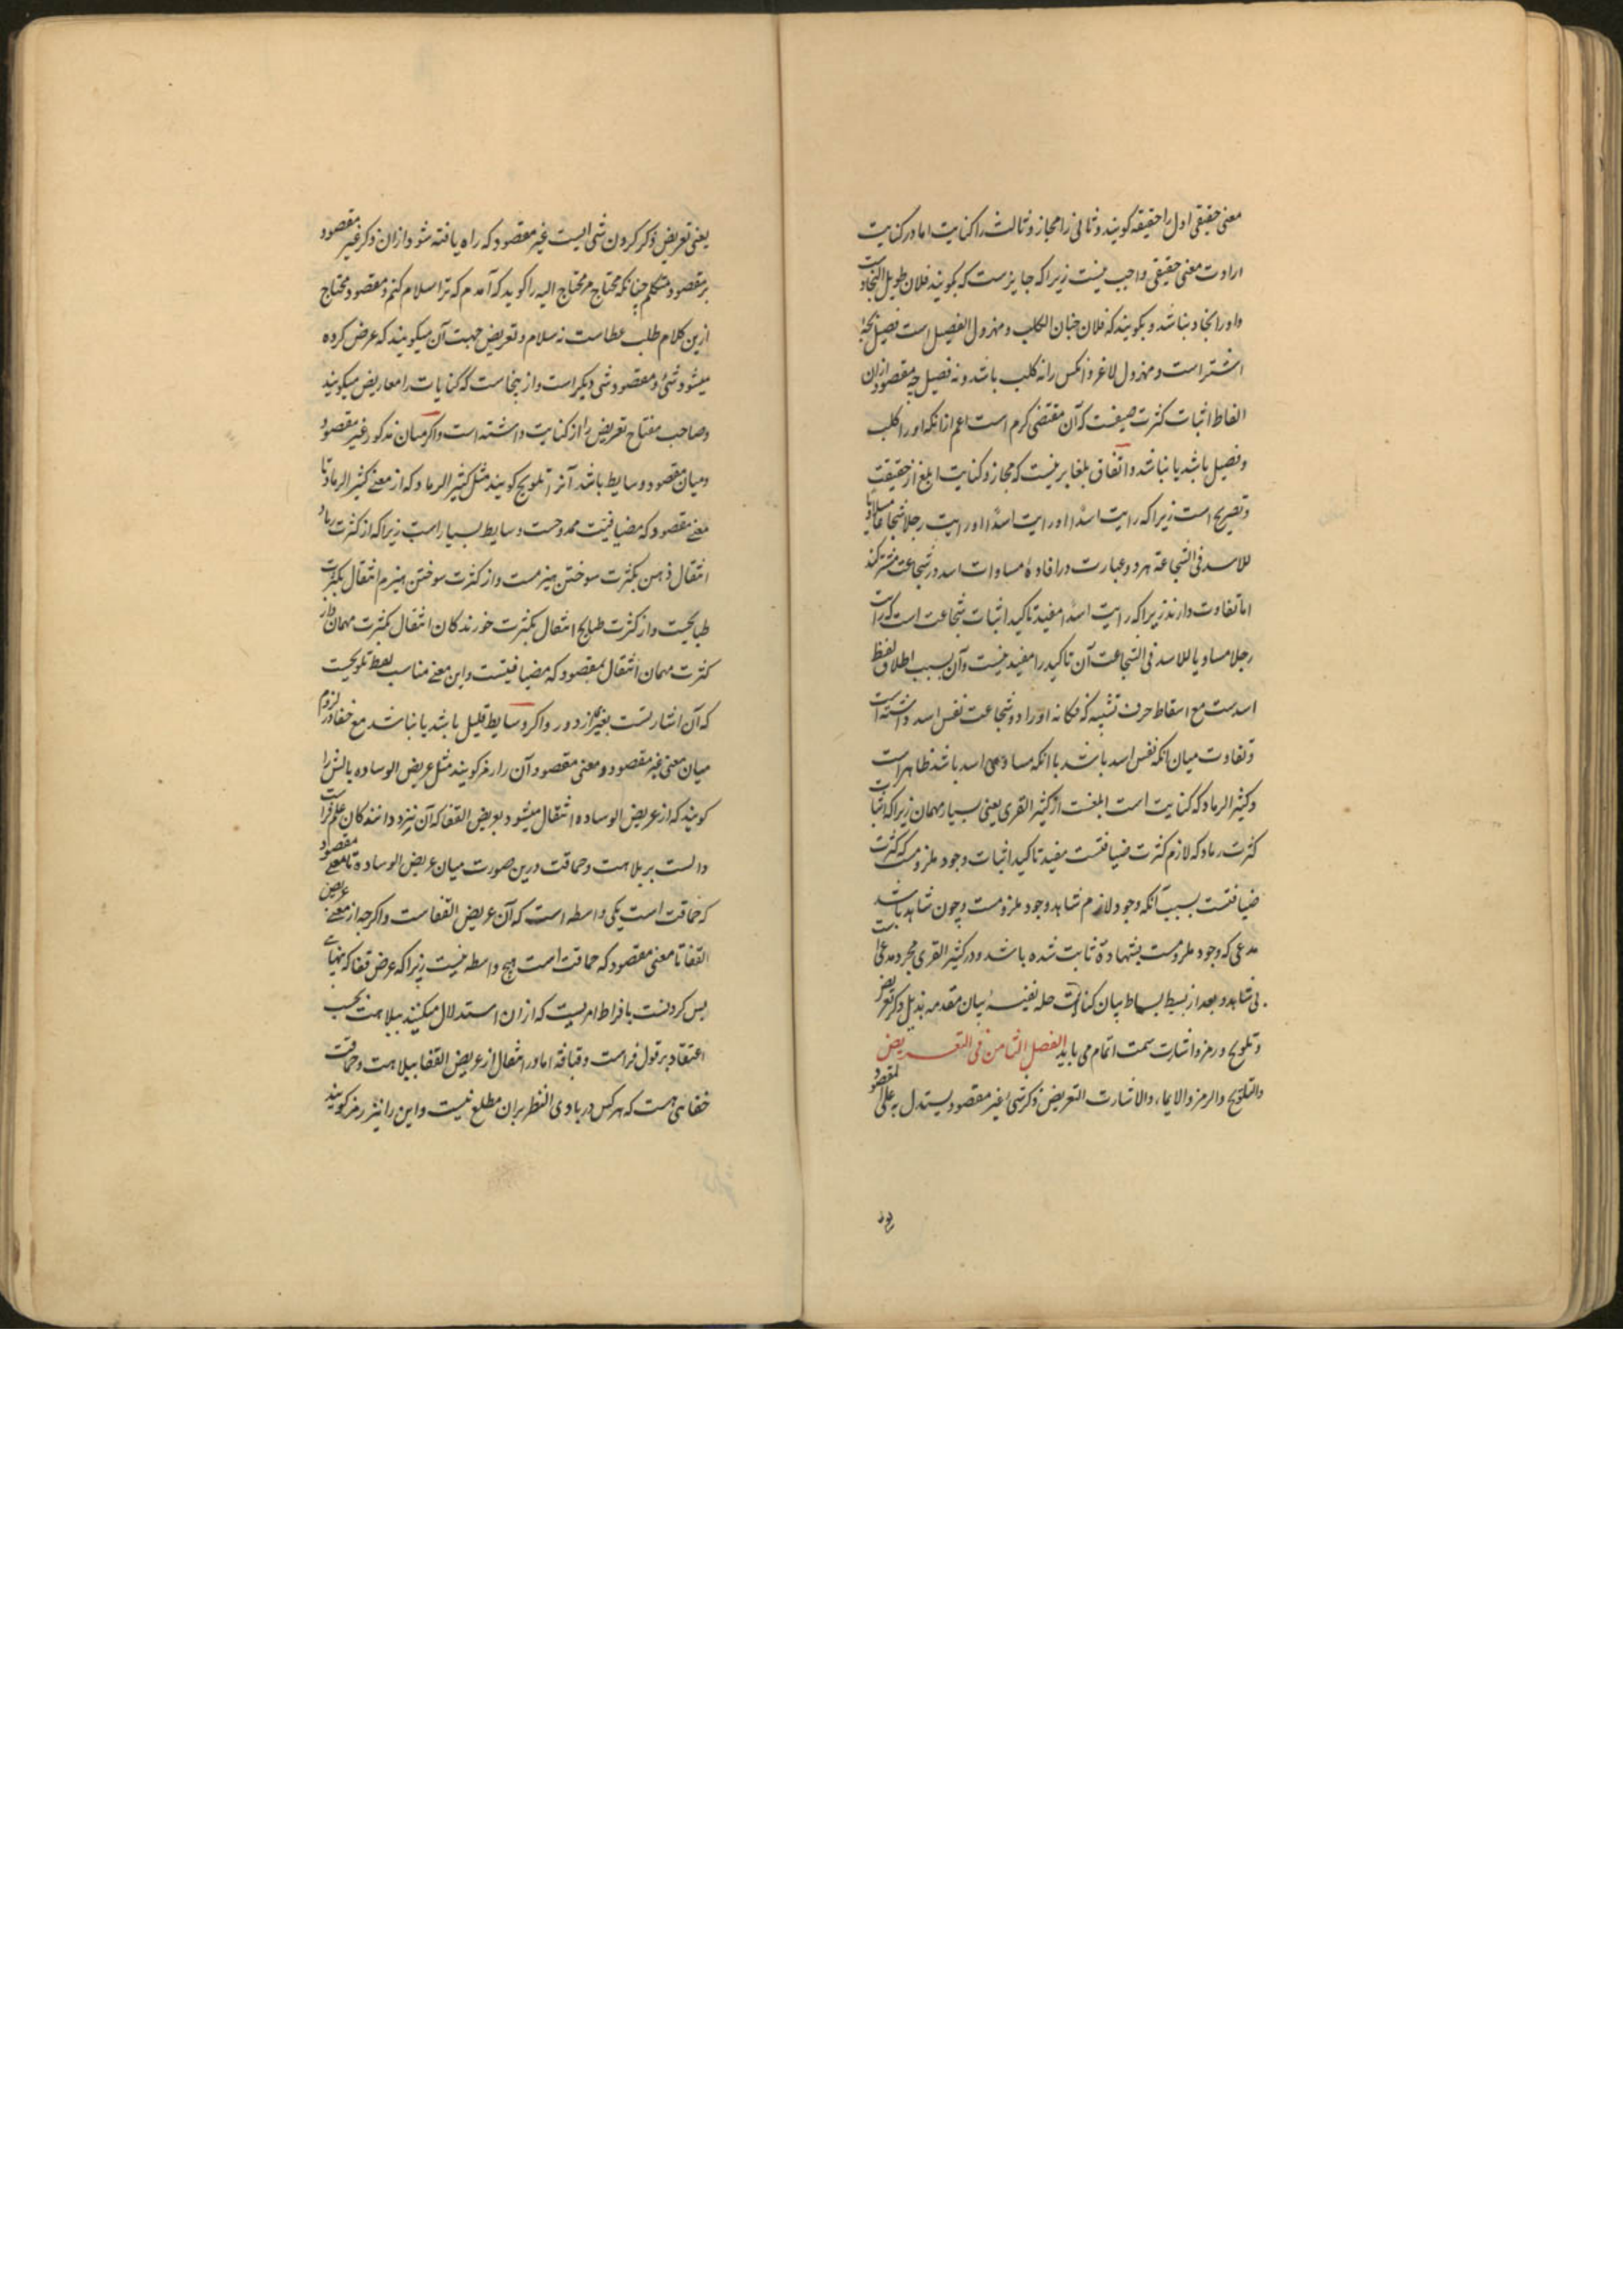 معنی حقیقی اول را حقیقة کویند و ثانی را مجاز و ثالث را کنایت اما در کنایت
ارادت معنی حقیقی واجب نیست زیرا که جایزست که بکویند فلان طویل النجادست
و او را نجاد نباشد و بکویند که فلان جبان الکلب و مهزول الفصیل است فصیل بچهٔ
اشترست و مهزول لاغر و انکس را نه کلب باشد و نه فصیل چه مقصود ازان
الفاظ اثبات کثرت ضیفست که آن مقتضی کرم است اعم ازانکه او را کلب
و فصیل باشد یا نباشد و اتفاق بلغا برینست که مجاز و کنایت ابلغ از حقیقت
و تصریح است زیرا که رایت اسدًا و رایت رجلا شجاعا مساویا
للاسد فی الشجاعة هر دو عبارت در افادهٔ مساوات اسد در شجاعت مشترکند
اما تفاوت دارند زیرا که رایت اسدًا مفید تاکید اثبات شجاعت است که رایت
رجلا مساویا للاسد فی الشجاعت آن تاکید را مفید نیست و آن بسبب اطلاق لفظ
اسدست مع اسقاط حرف تشبیه که فکانه او را در شجاعت نفس اسد داشته است
و تفاوت میان انکه نفس اسد باشد با انکه مساوی اسد باشد ظاهر است
و کثیر الرماد که کنایت است ابلغست از کثیر القری یعنی بسیار مهمان زیرا که اثبات
کثرت رماد که لازم کثرت ضیافتست مفید تاکید اثبات وجود ملزومست که کثرت
ضیافتست بسبب آنکه وجود لازم شاهد وجود ملزومست و چون شاهد باشد
مدعی که وجود ملزومست بشهادة ثابت شده باشد و در کثیر القری مجرد مدعا است
بی شاهد و بعد از بسط بساط بیان کنایت حله نفیسهٔ بیان مقدمه بذیل ذکر تعریض
و تلویح و رمز و اشارت سمت اتمام می یابد الفصل الثامن فی التعریض
والتلویح والرمز والایماء والاشارت التعریض ذکر شئ غیر مقصود یستدل به علی المقصود
یعنی تعریض ذکر کردن شی ایست غیر مقصود که راه یافته شود ازان ذکر غیر مقصود
بر مقصود متکلم چنانکه محتاج مر محتاج الیه را کوید که آمدم که ترا سلام کنم و مقصود محتاج
ازین کلام طلب عطاست نه سلام و تعریض جهت آن میکویند که عرض کرده
میشود شئ و مقصود شی دیکر است و ازینجاست که کنایات را معاریض میکویند
و صاحب مفتاح تعریض را از کنایت داشته است و اکر میان مذکور غیر مقصود
و میان مقصود وسایط باشد آنرا تلویح کویند مثل کثیر الرماد که از معنی کثیر الرماد تا
معنی مقصود که مضیافیت ممدوحست وسایط بسیار است زیرا که از کثرت رماد
انتقال ذهن بکثرت سوختن هیزمست و از کثرت سوختن هیزم انتقال بکثرت
طبایخست و از کثرت طبایخ انتقال بکثرت خورندکان انتقال بکثرت مهمان و از
کثرت مهمان انتقال بمقصود که مضیافیتست و این معنی مناسب لفظ تلویحست
که آن اشارتست بغیر از دور و اکر وسایط قلیل باشد یا نباشد مع خفا در لزوم
میان معنی غیر مقصود و معنی مقصود آن را رمز کویند مثل عریض الوساده بالش را
کویند که از عریض الوساده انتقال میشود بعریض القفا که آن نزد دانندکان علم فراست
دالست بر بلاهت و حماقت درین صورت میان عریض الوساده تا معنی مقصود
که حماقت است یکی واسطه است که آن عریض القفاست و اکرچه از معنی عریض
القفا تا معنی مقصود که حماقت است هیچ واسطه نیست زیرا که عرض قفا که پهنای
پس کردنست بافراط امریست که ازان استدلال میکنند ببلاهت بحسب
اعتقاد بر قول فراست و قیافه اما در انتقال از عریض القفا ببلاهت و حماقت
خفایی هست که هر کس در بادی النظر بران مطلع نیست و این را نیز رمز کویند